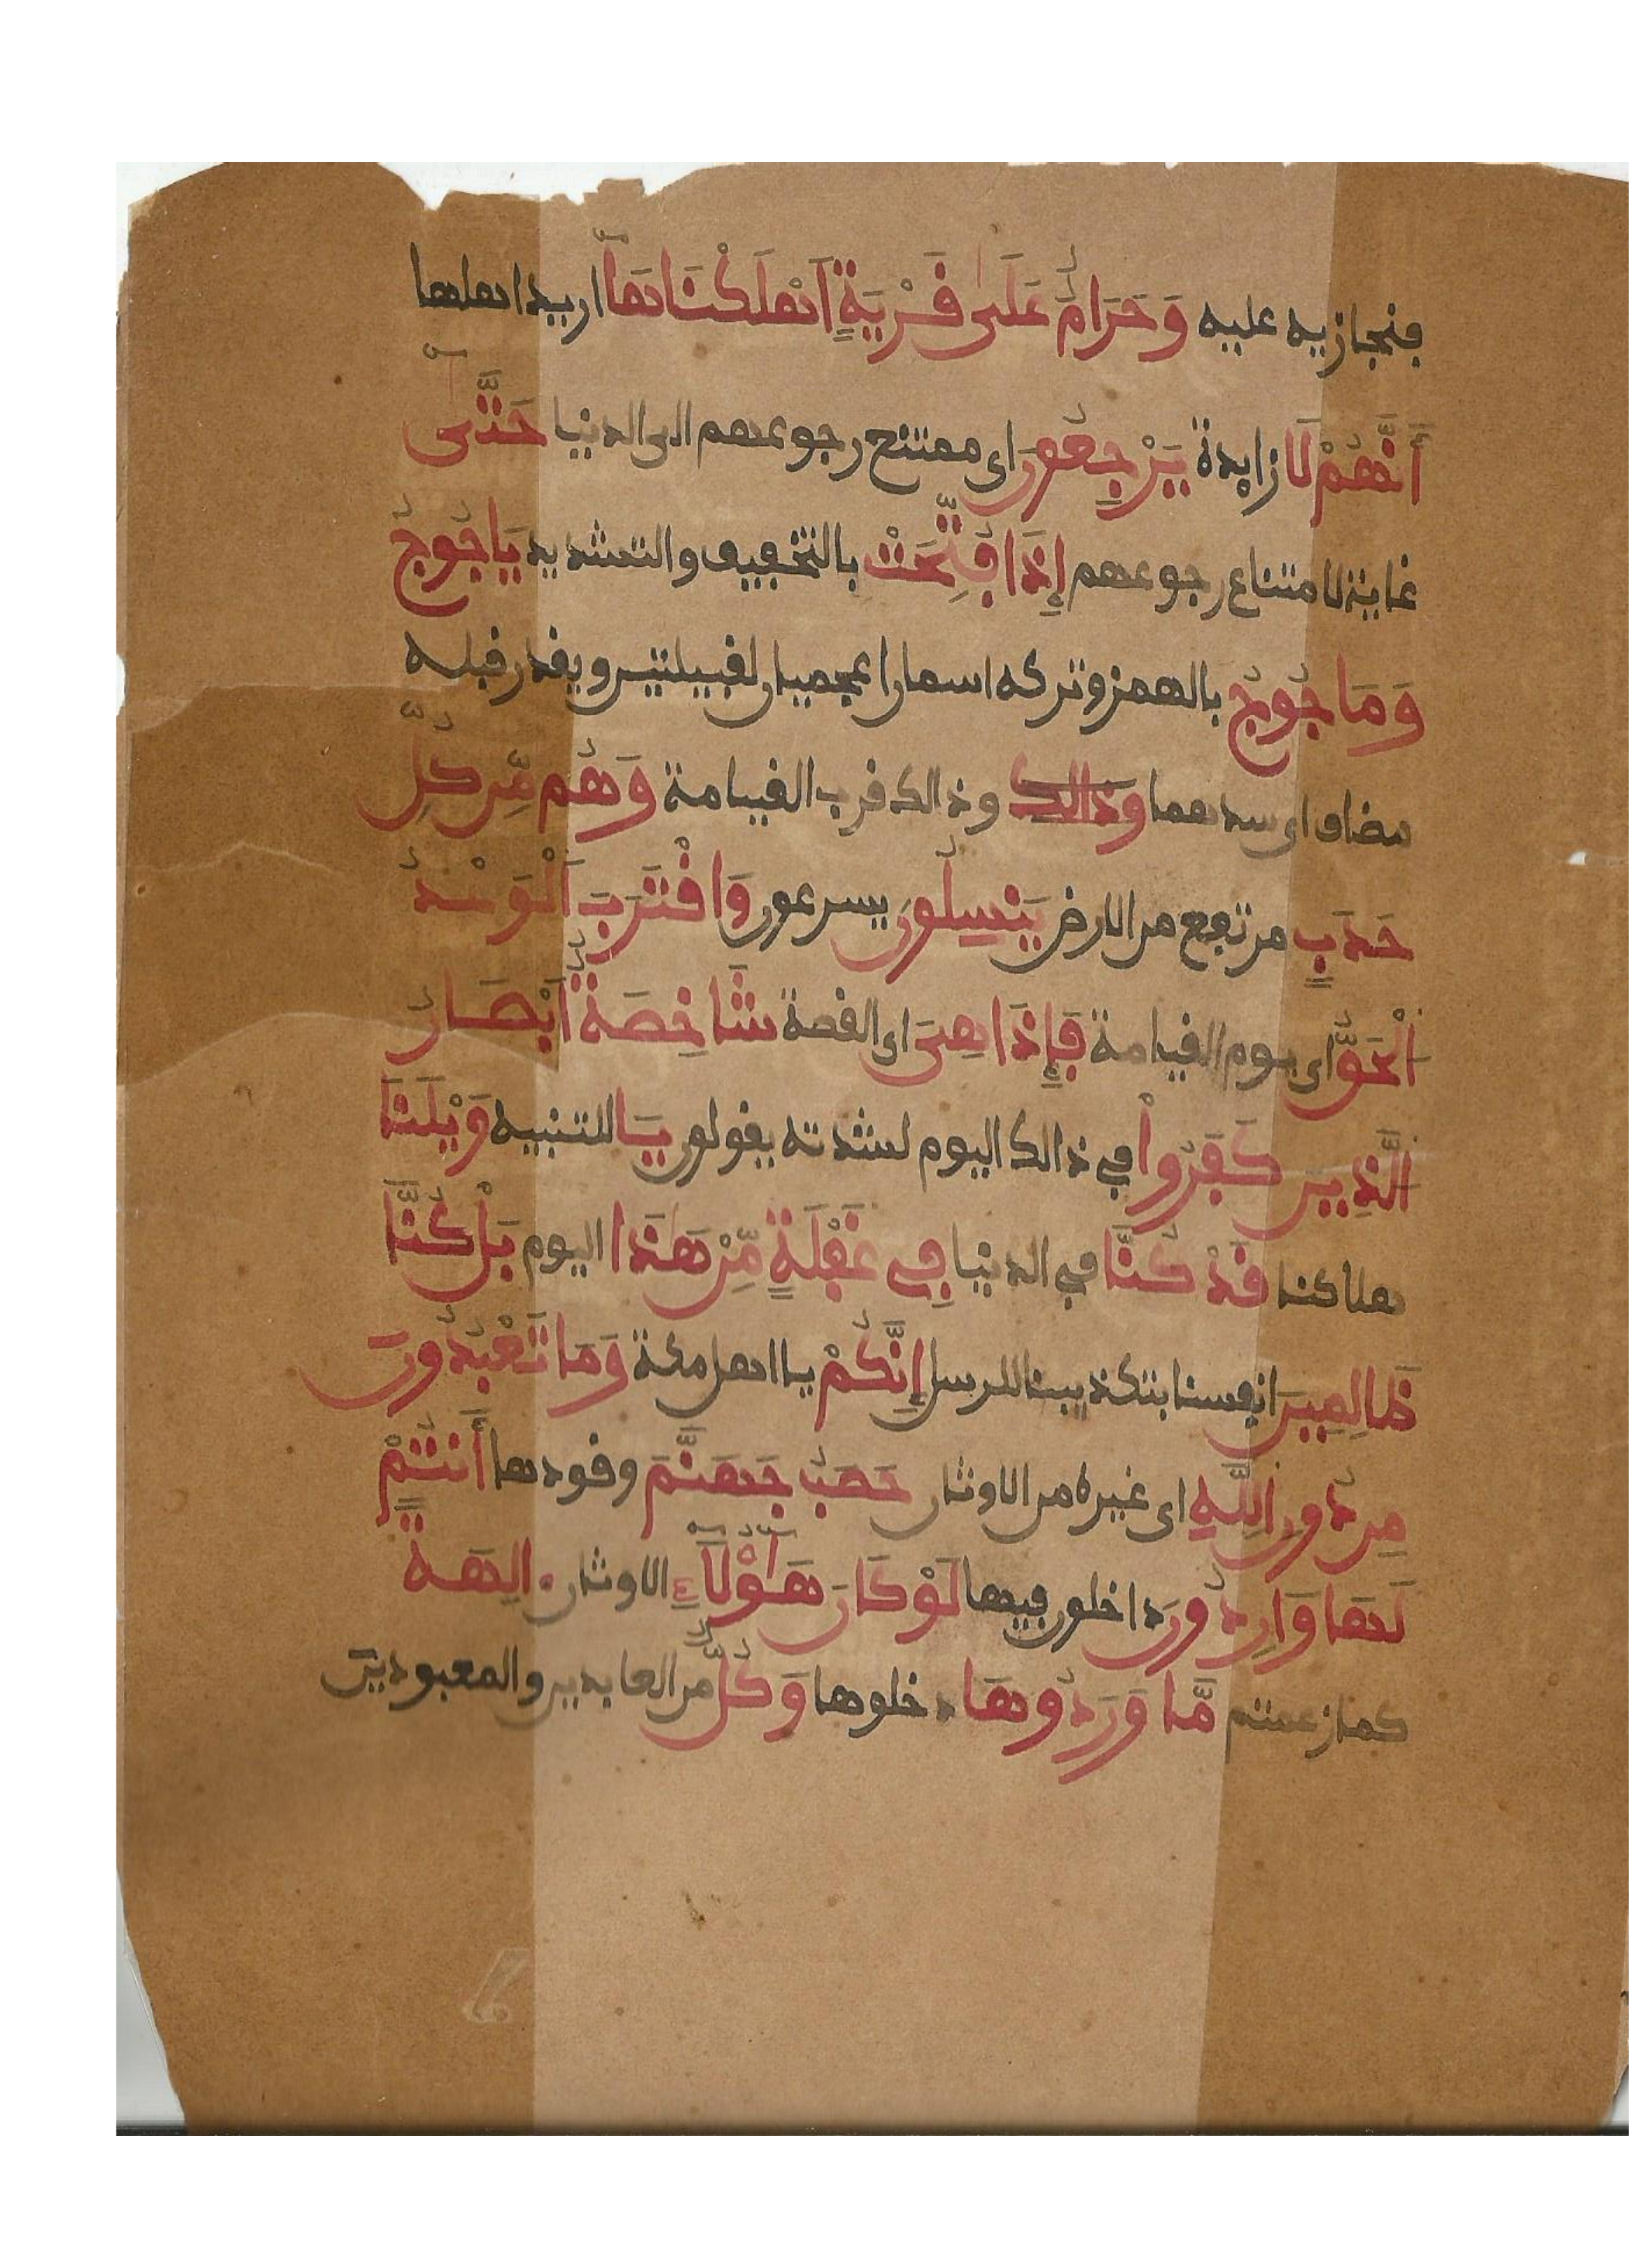 فنجازيه عليه وَحَرَامٌ عَلَىٰ قَرْيَةٍ اَهْلَكْنَاهَآ اريد اهلها
أَنَّهُمْ لَا زايدة يَرْجِعُونَ اى ممتنع رجوعهم الى الدنيا حَتَّىٰٓ
غاية لامتناع رجوعهم إِذَا فُتِّحَتْ بالتخفيف والتشديد يَاجُوجُ
وَمَاجُوجُ بالهمز وتركه اسمان اعجميان لقبيلتين ويقدر قبله
مضاف اى سدهما وذالك وذالك قرب القيامة وَهُم مِّن كُلِّ
حَدَبٍ مرتفع من الارض يَنسِلُونَ يسرعون وَاقْتَرَبَ اَلْوَعْدُ
اُلْحَقُّ اى يوم القيامة فَإِذَا هِىَ اى القصة شَاخِصَةٌ اَبْصَارُ
اُلَّذِينَ كَفَرُواْ في ذالك اليوم لشدته يقولون يَا للتنبيه وَيْلَنَا
هلاكنا قَدْ كُنَّا في الدنيا فِي غَفْلَةٍ مِّنْ هَٰذَا اليوم بَلْ كُنَّا
ظَالِمِينَ انفسنا بتكذيبنا للرسل إِنَّكُمْ يا اهل مكة وَمَا تَعْبُدُونَ
مِن دُونِ اِللَّهِ اى غيره من الاوثان حَصَبُ جَهَنَّمَ وقودها أَنتُمْ
لَهَا وَارِدُونَ داخلون فيها لَوْ كَانَ هَٰٓؤُلَآءِ الاوثان ءَالِهَةً
كما زعمتم مَّا وَرَدُوهَا دخلوها وَكُلٌّ من العابدين والمعبودين